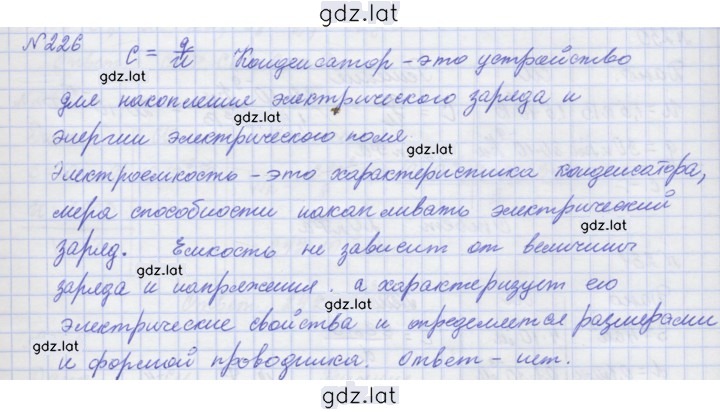 gdz.lat
№226 C = q/U Конденсатор – это устройство
gdz.lat
для накопления электрического заряда и
gdz.lat
энергии электрического поля.
gdz.lat
Электроемкость – это характеристика конденсатора,
gdz.lat
мера способности накапливать электрический
gdz.lat
заряд. Емкость не зависит от величины
gdz.lat
заряда и напряжения. а характеризует его
gdz.lat
электрические свойства и определяется размерами
gdz.lat
и формой проводника. Ответ – нет.
gdz.lat
gdz.lat